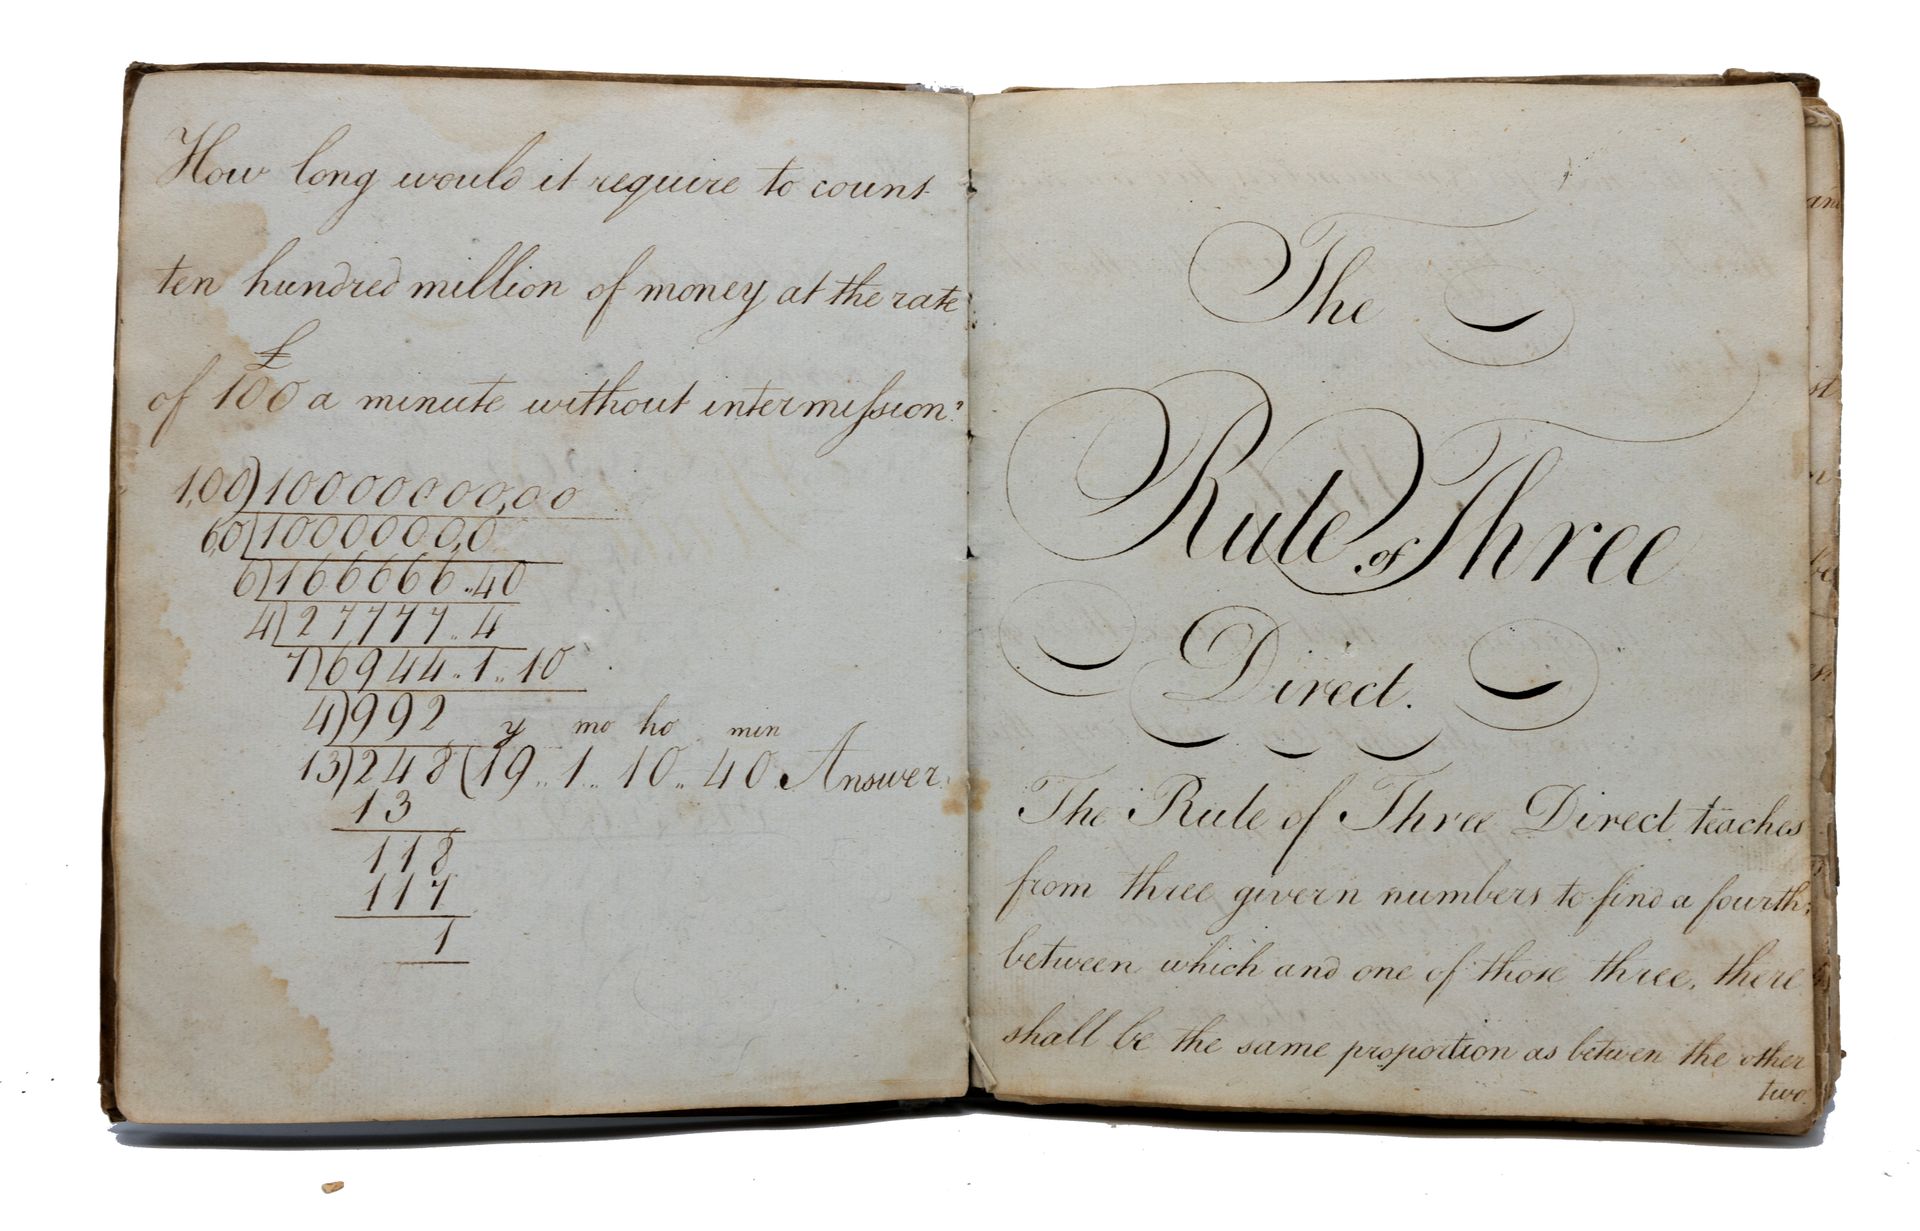 How long would it require to count
ten hundred million of money at the rate
£
of 100 a minute without intermiſsion?
1,00)10000000,00
6,0)1000000,0
6)166666..40
4)27777..4
7)6944..1..10
4)992 y mo ho min
13)248(19..1..10..40 Answer.
13
118
117
1
The
Rule of Three
Direct.
The Rule of Three Direct teaches
from three givern numbers to find a fourth;
between which and one of those three, there
shall be the same proportion as betwen the other
two.